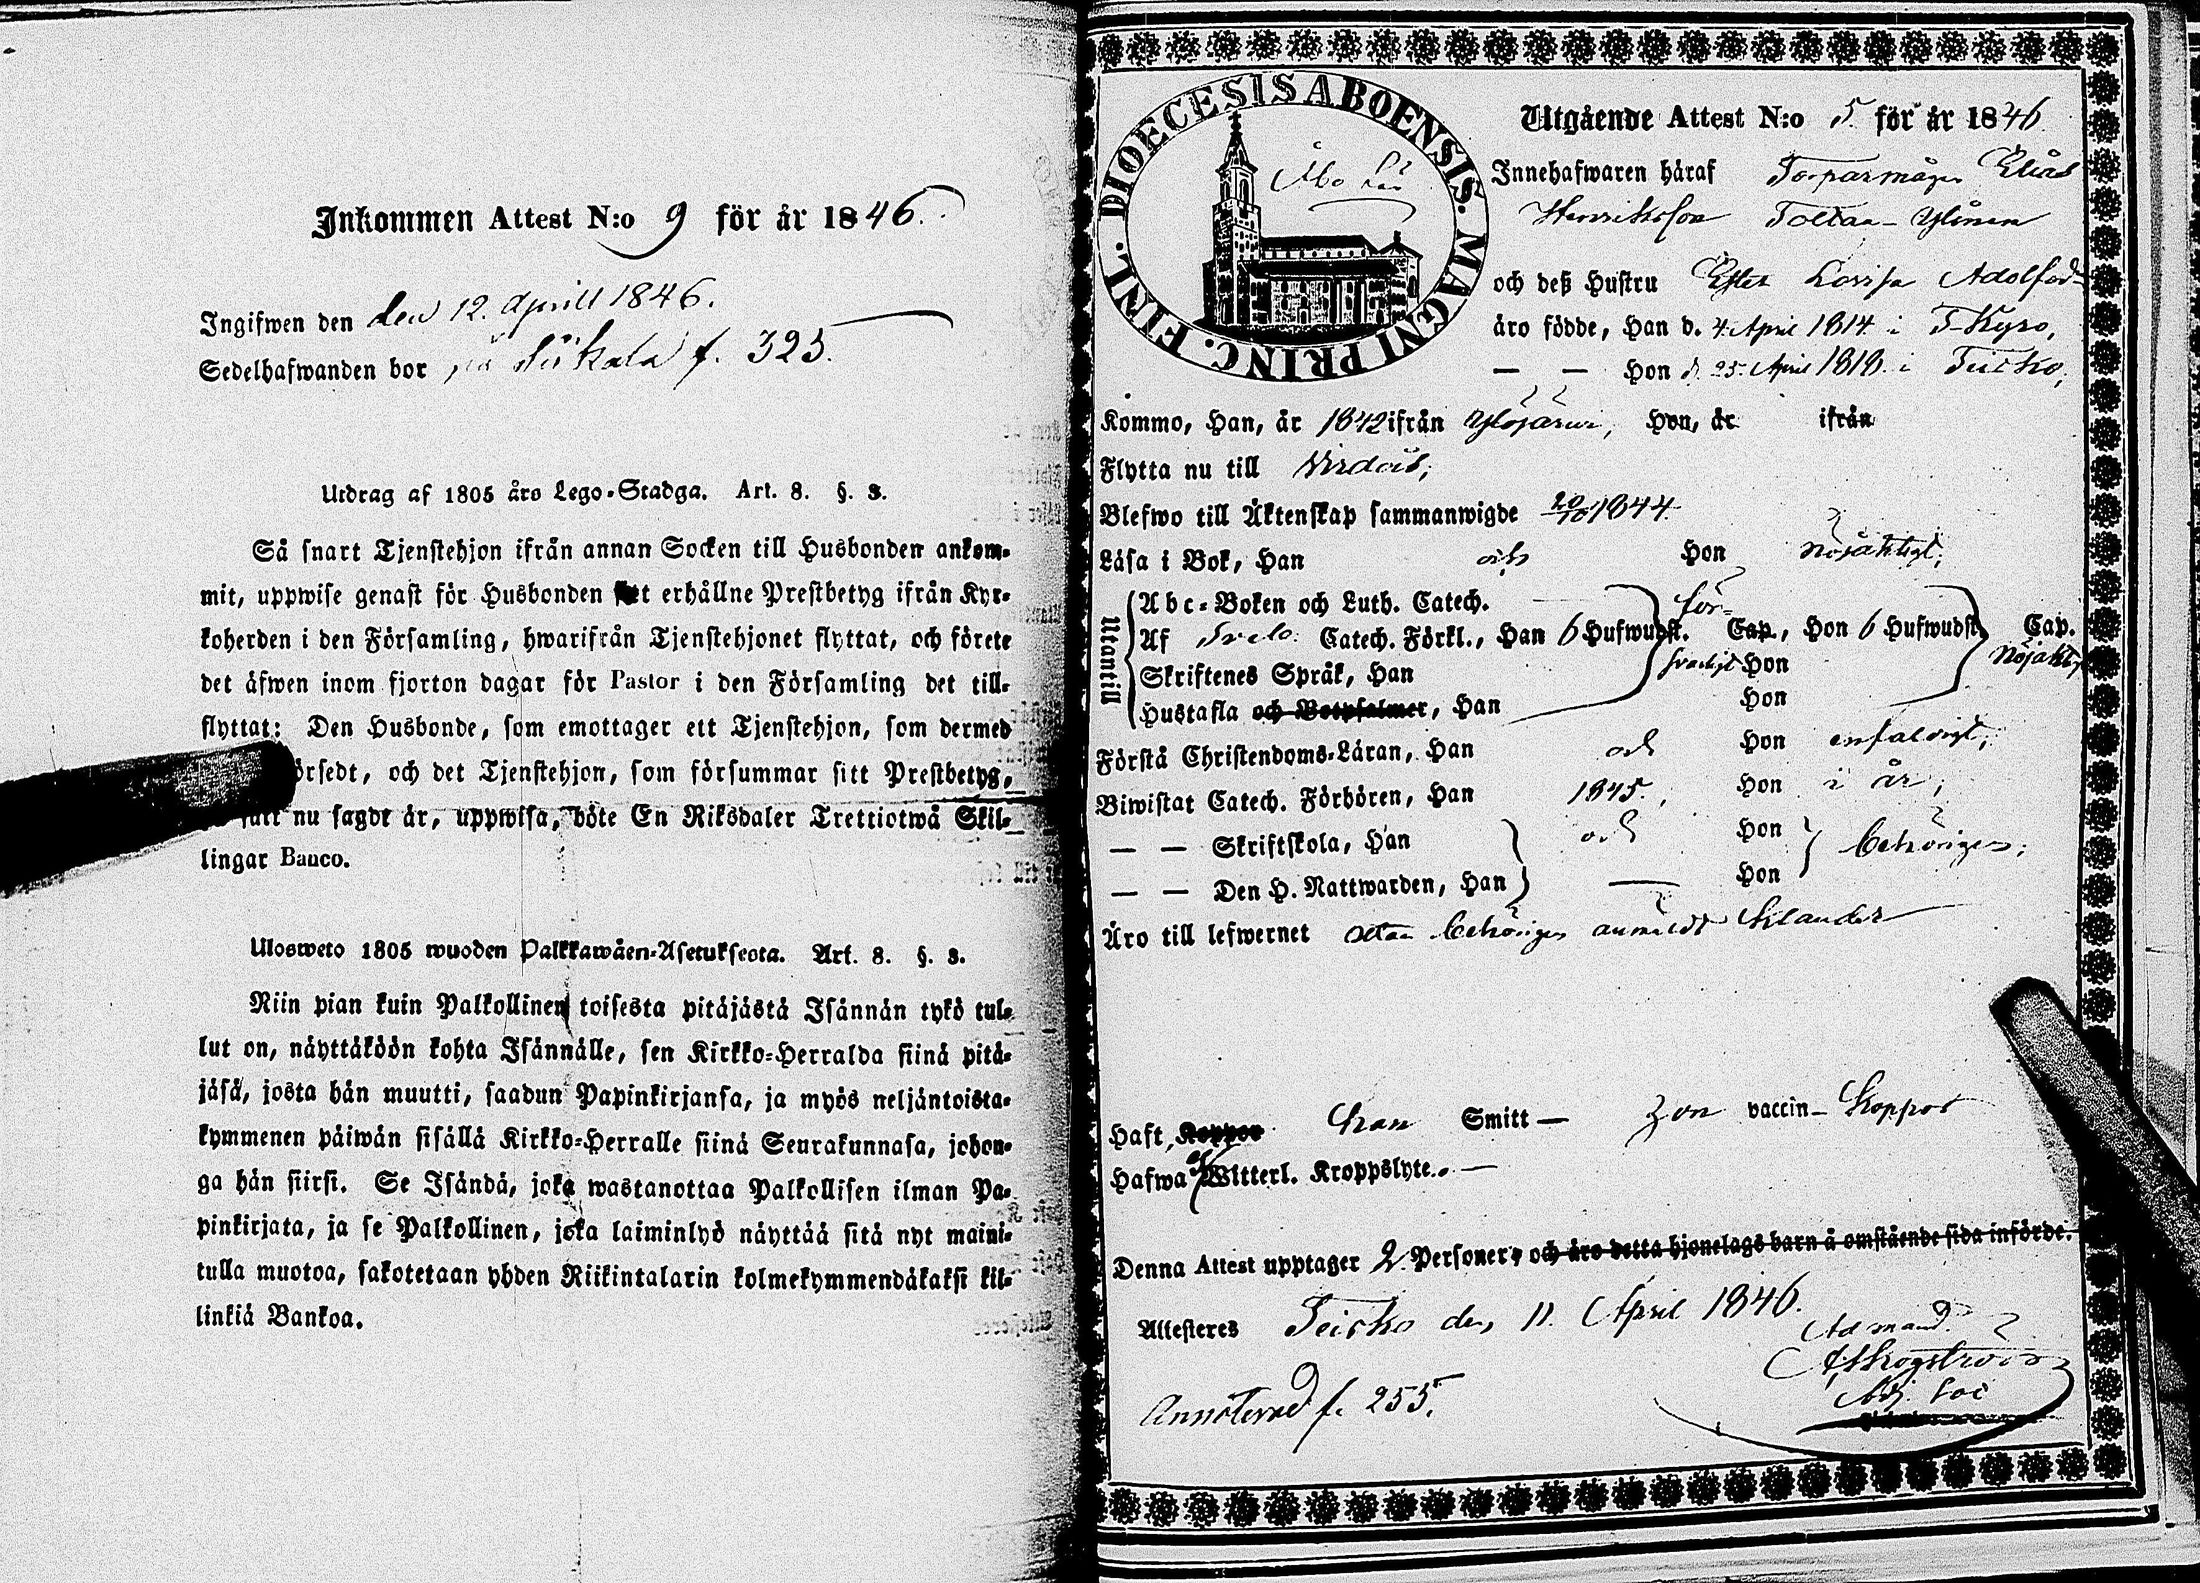 Inkommen Attest N:o 9 för år 1846.
Ingifwen den den 12. Aprill 1846.
Sedelhafwanden bor på f. 325.
Utdrag af 1805 års Lego-Stadga. Art. 8. §. 3.
Så snart Tjenstehjon ifrån annan Socken till Husbonden ankom-
mit, uppwise genast för Husbonden sitt erhållne Prestbetyg ifrån Kyr-
koherden i den Församling, hwarifrån Tjenstehjonet flyttat, och förete
det äfwen inom fjorton dagar för Pastor i den Församling det till-
flyttat: Den Husbonde, som emottager ett Tjenstehjon, som dermed
försedt, och det Tjenstehjon, som försummar sitt Prestbetyg,
sätt nu sagdt är, uppwisa, böte En Riksdaler Trettiotwå Skil-
lingar Banco.
Ulosweto 1805 wuoden Palkkawäen-Asetuksesta. Art. 8. §. 3.
Niin pian kuin Palkollinen toisesta pitäjästä Isännän tykö tul-
lut on, näyttäköön kohta Isännälle, sen Kirkko-Herralda siinä pitä-
jäsä, josta hän muutti, saadun Papinkirjansa, ja myös neljäntoista-
kymmenen päiwän sisällä Kirkko-Herralle siinä Seurakunnasa, johon-
ga hän siirsi. Se Isändä, joka wastanottaa Palkollisen ilman Pa-
pinkirjata, ja se Palkollinen, joka laiminlyö näyttää sitä nyt maini-
tulla muotoa, sakotetaan yhden Riikintalarin kolmekymmendäkaksi kil-
linkiä Bankoa.
FINL. DIOECESIS ABOENSIS. MAGNI PRINC.
Åbo Län
Utgående Attest N:o 5. för år 1846
Innehafwaren häraf Torparmågen Elias
Henriksson Toltaa-Ylinen
och deß Hustru Ester Lovisa Adolfsd-
äro födde, Han d. 4. April 1814 i T Kyro,
— — Hon d. 25. April 1818. i Teisko,
Kommo, Han, år 1842 ifrån Ylöjärvi, Hon, år ifrån
Flytta nu till Virdois;
Blefwo till Äktenskap sammanwigde 20/10 1844.
Läsa i Bok, Han och Hon nöjaktigt;
Utantill
Abc-Boken och Luth. Catech.
Af Svebo. Catech. Förkl., Han 6 Hufwudst. för- Cap., Hon 6 Hufwudst. Cap.
Skriftenes Språk, Han svarligt Hon Nöjaktigt
Hustafla och Botpsalmer, Han Hon
Förstå Christendoms-Läran, Han och Hon enfaldigt;
Biwistat Catech. Förhören, Han 1845., Hon i år;
— — Skriftskola, Han och Hon behörigen;
— — Den H. Nattwarden, Han — Hon
Äro till lefwernet utan behörigen anmäldt klander
Haft, Koppor han Smitt — hon vaccin- koppor
Hafwa ej Witterl. Kroppslyte. —
Denna Attest upptager 2 Personer, och äro detta hjonelags barn å omstående sida införde.
Attesteres Teisko den 11. April 1846.
Ad mand.
A Skogström
Adj. Loc
Annoterad f. 255.